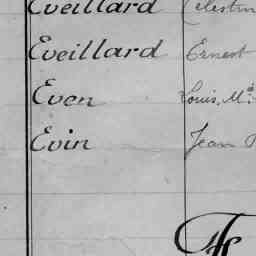 Eveillard Célestin
Eveillard Ernest
Even Louis, M.
Evin Jean